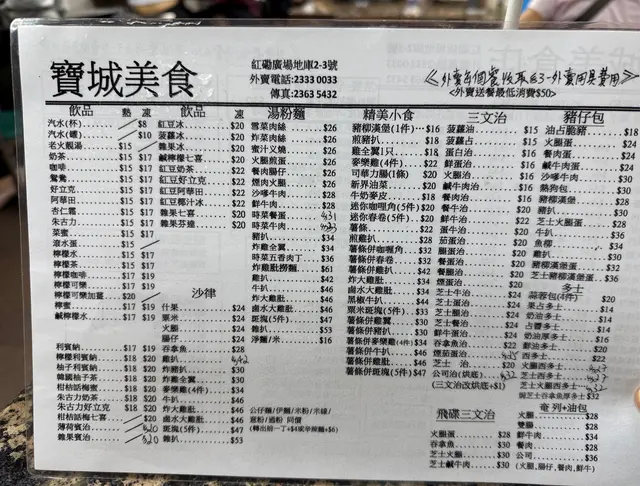 寶城美食
紅磡廣場地庫2-3號
外賣電話:2333 0033
傳真:2363 5432
<外賣送餐最低消費$50>
飲品 熱 凍
汽水(杯) $8
汽水(罐) $10
老火靚湯 $15
奶茶 $15 $17
咖啡 $15 $17
鴛鴦 $15 $17
好立克 $15 $17
阿華田 $15 $17
杏仁霜 $15 $17
朱古力 $15 $17
菜蜜 $15 $17
滾水蛋 $15
檸檬水 $15 $17
檸檬茶 $15 $17
檸檬咖啡 $17 $19
檸檬可樂 $17 $19
檸檬可樂加薑 $20
檸蜜 $17 $19
鹹檸檬水 $17 $19
利賓納 $17 $19
檸檬利賓納 $18 $20
柚子利賓納 $18 $20
韓國柚子茶 $18 $20
柑桔話梅蜜 $18 $20
朱古力奶茶 $18 $20
朱古力好立克 $18 $20
柑桔話梅七喜 $20
薄荷賓治 $20
雜果賓治 $20
飲品 凍
紅豆冰 $20
菠蘿冰 $20
雜果冰 $20
鹹檸檬七喜 $20
紅豆奶茶 $22
紅豆好立克 $22
紅豆阿華田 $22
紅豆椰汁冰 $22
雜果七喜 $20
雜果芬達 $20
沙律
什果 $24
粟米 $24
火腿 $24
腸仔 $24
吞拿魚 $28
雞扒
豬扒 $30
炸雞扒 $30
炸雞全翼 $30
麥樂雞(4件) $34
牛扒 $46
炸大雞肶 $46
鹵水大雞肶 $46
斑塊(5件) $47
雜扒 $53
湯粉麵
雪菜肉絲 $26
榨菜肉絲 $26
蜜汁叉燒 $26
火腿煎蛋 $26
餐肉腸仔 $26
煙肉火腿 $26
沙嗲牛肉 $28
鮮牛肉 $28
時菜餐蛋
時菜牛肉
豬扒 $34
炸雞全翼 $34
時菜五香肉丁 $36
炸雞肶撈麵 $61
雞扒 $42
牛扒 $46
炸大雞肶 $46
鹵水大雞肶 $46
斑塊(5件) $47
雜扒 $53
淨麵/米 $16
公仔麵/伊麵/米粉/米線/
意粉/通粉 同價
精美小食
豬柳漢堡(1件) $16
煎豬扒 $18
雞全翼1只 $18
麥樂雞(4件) $22
司華力腸(1條) $20
新界油菜 $20
牛奶麥皮 $18
迷你咖喱角(5件) $20
迷你春卷(5件) $20
薯條 $22
煎雞扒 $28
薯條併咖喱角 $32
薯條併春卷 $32
薯條併雞肶 $42
炸大雞肶 $34
鹵水大雞肶 $34
黑椒牛扒 $44
粟米斑塊(5件) $33
薯條併雞翼 $30
薯條併豬扒 $30
薯條併麥樂雞(4件) $34
薯條併牛扒 $46
薯條併雞扒 $36
薯條併斑塊(5件) $47
三文治
菠蘿油 $15
菠蘿占 $15
蛋白治 $16
鮮蛋治 $16
火腿治 $16
鹹牛肉治 $16
餐肉治 $16
腸仔治 $20
鮮牛治 $22
蛋牛治 $20
茄蛋治 $20
餐蛋治 $20
腿蛋治 $20
腸蛋治 $20
煙蛋治 $20
芝士牛治 $24
芝士蛋治 $24
芝士腿治 $24
芝士餐治 $24
芝士火治 $24
吞拿魚治 $22
煙茄蛋治
芝士 治 $20
公司治(烘底)
(三文治改烘底+$1)
飛碟三文治
火腿蛋 $28
吞拿魚 $30
芝士火腿 $30
芝士鹹牛肉 $30
豬仔包
油占脆豬 $18
火腿蛋 $24
餐肉蛋 $24
鮮牛肉 $30
沙嗲牛肉 $30
熱狗包 $30
豬柳漢堡 $28
豬扒 $30
芝士火腿蛋 $28
牛扒 $36
魚柳 $34
雞扒 $30
豬柳漢堡蛋 $32
芝士豬柳漢堡蛋 $36
多士
蒜蓉包(4件) $20
果占多士 $14
奶油多士 $14
占醬多士 $14
奶油厚多士 $16
鮮油多士 $22
西多士
火腿西多士
芝士西多士
芝士火腿西多士
豌芝士吞拿魚厚多士 $32
奄列+油包
火腿 $28
雙腸 $28
鮮牛肉 $34
餐肉 $28
公司 $36
(火腿,腸仔,餐肉,鮮牛)